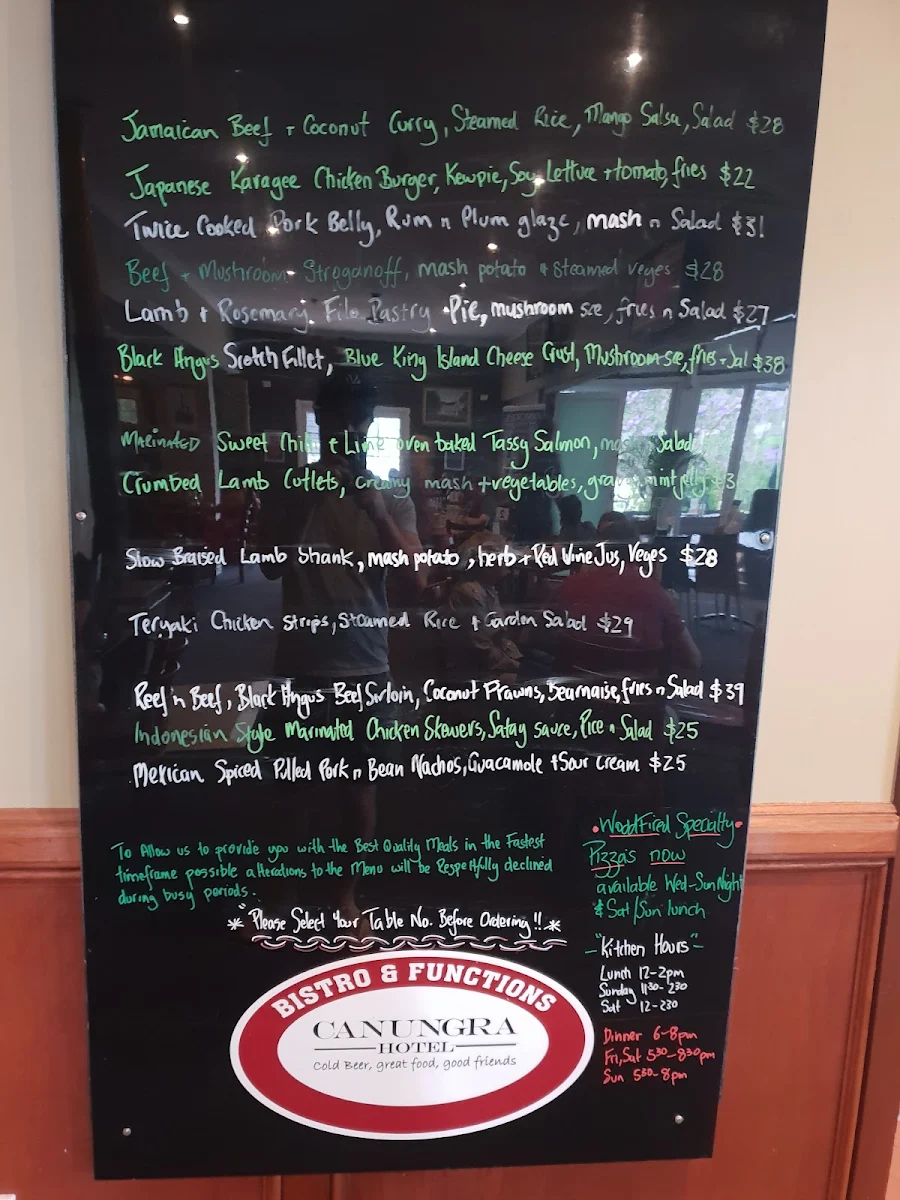 Jamaican Beef + Coconut Curry, Steamed Rice, Mango Salsa, Salad $28
Japanese Karagee Chicken Burger, Kewpie, Soy, Lettuce + tomato, fries $22
Twice Cooked Pork Belly, Rum n Plum glaze, mash n Salad $31
Beef + Mushroom Stroganoff, mash potato + steamed veges $28
Lamb + Rosemary Filo Pastry Pie, mushroom sce, fries n Salad $27
Black Angus Scotch Fillet, Blue King Island Cheese Crust, Mushroom sce, fries + Sal $38
Marinated Sweet Chili + Lime oven baked Tassy Salmon, Salad
Crumbed Lamb Cutlets, creamy mash + vegetables, gravy mint jelly
Slow Braised Lamb Shank, mash potato, herb + Red Wine Jus, Veges $28
Teryaki Chicken Strips, Steamed Rice + Garden Salad $29
Reef 'n Beef, Black Angus Beef Sirloin, Coconut Prawns, Bearnaise, fries n Salad $39
Indonesian Style Marinated Chicken Skewers, Satay sauce, Rice n Salad $25
Mexican Spiced Pulled Pork n Bean Nachos, Guacamole + Sour Cream $25
To Allow us to provide you with the Best Quality Meals in the Fastest
timeframe possible alterations to the Menu will be Respectfully declined
during busy periods.
*"Please Select Your Table No. Before Ordering!!*
•WoodFired Specialty•
Pizza's now
available Wed-Sun Night
& Sat/Sun lunch
-"Kitchen Hours"-
Lunch 12-2pm
Sunday 11:30-230
Sat 12-230
Dinner 6-8pm
Fri, Sat 530-830pm
Sun 530-8pm
BISTRO & FUNCTIONS
CANUNGRA
HOTEL
Cold Beer, great food, good friends